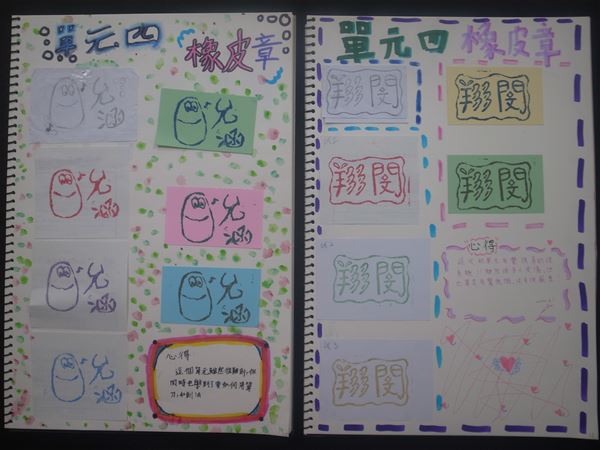 單元四
橡皮章
允
涵
允
涵
允
涵
允
涵
允
涵
允
涵
允
涵
心得
這個單元雖然很難刻,但
同時也學到了要如何用筆
刀,和刻法
單元四 橡皮章
翔閔
翔閔
翔閔
翔閔
翔閔
翔閔
心得